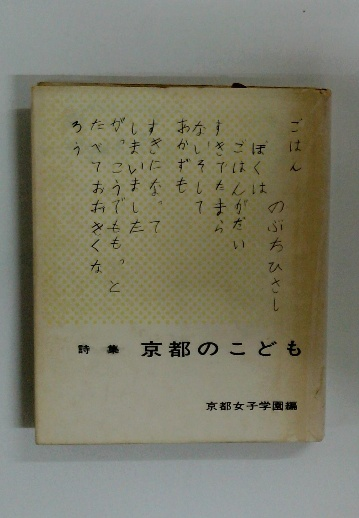 ごはん
のぶちひさし
ぼくは
ごはんがだい
すきでたまら
ないそして
おかずも
すきになって
しまいました
が。こうでもも。と
たべておおきくな
ろう
詩集 京都のこども
京都女子学園編